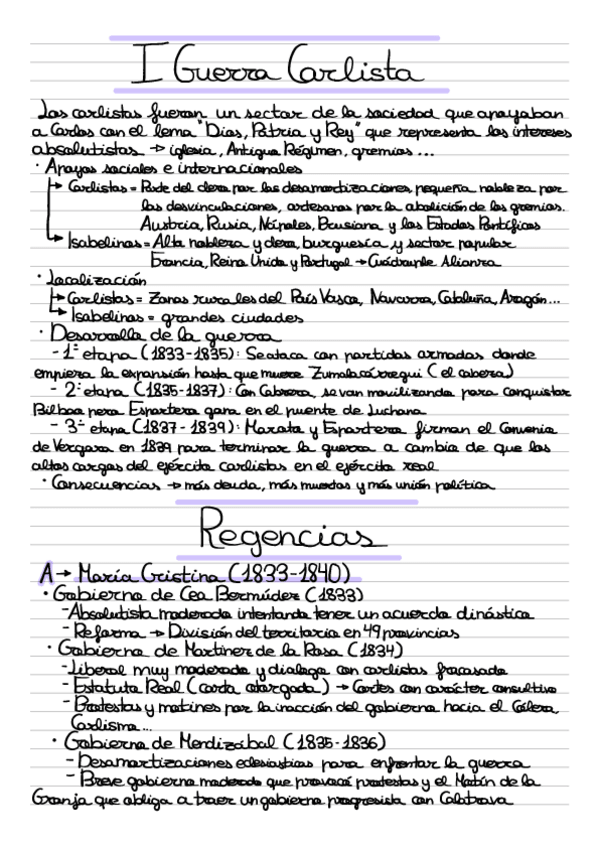 I Guerra Carlista
Los carlistas fueron un sector de la sociedad que apoyaban
a Carlos con el lema "Dios, Patria y Rey" que representa los intereses
absolutistas → iglesia, Antiguo Régimen, gremios ...
· Apoyos sociales e internacionales
↳ Carlistas = Parte del clero por las desamortizaciones, pequeña nobleza por
las desvinculaciones, artesanos por la abolición de los gremios.
Austria, Rusia, Nápoles, Prusiana y los Estados Pontíficos
↳ Isabelinos = Alta nobleza y clero, burguesía y sector popular
Francia, Reino Unido y Portugal → Cuádruple Alianza
· Localización
↳ Carlistas = Zonas rurales del País Vasco, Navarra, Cataluña, Aragón...
↳ Isabelinos = grandes ciudades
· Desarrollo de la guerra
- 1ª etapa (1833-1835): Se ataca con partidas armadas donde
empieza la expansión hasta que muere Zumalacárregui (el cabeza)
- 2ª etapa (1835-1837): Con Cabrera, se van movilizando para conquistar
Bilbao pero Espartero gana en el puente de Luchana
- 3ª etapa (1837-1839): Maroto y Espartero firman el Convenio
de Vergara en 1839 para terminar la guerra a cambio de que los
altos cargos del ejército carlistas en el ejército real
· Consecuencias → más deuda, más muertos y más unión política
Regencias
A → María Cristina (1833-1840)
· Gobierno de Cea Bermúdez (1833)
- Absolutista moderado intentando tener un acuerdo dinástico
- Reforma → División del territorio en 49 provincias
· Gobierno de Martínez de la Rosa (1834)
- Liberal muy moderado y dialoga con carlistas fracasado
- Estatuto Real (carta otorgada) → Cortes con carácter consultivo
- Protestas y motines por la inacción del gobierno hacia el Cólera,
Carlismo...
· Gobierno de Mendizábal (1835-1836)
- Desamortizaciones eclesiastias para enfrentar la guerra
- Breve gobierno moderado que provocó protestas y el Motín de la
Granja que obliga a traer un gobierno progresista con Calatrava